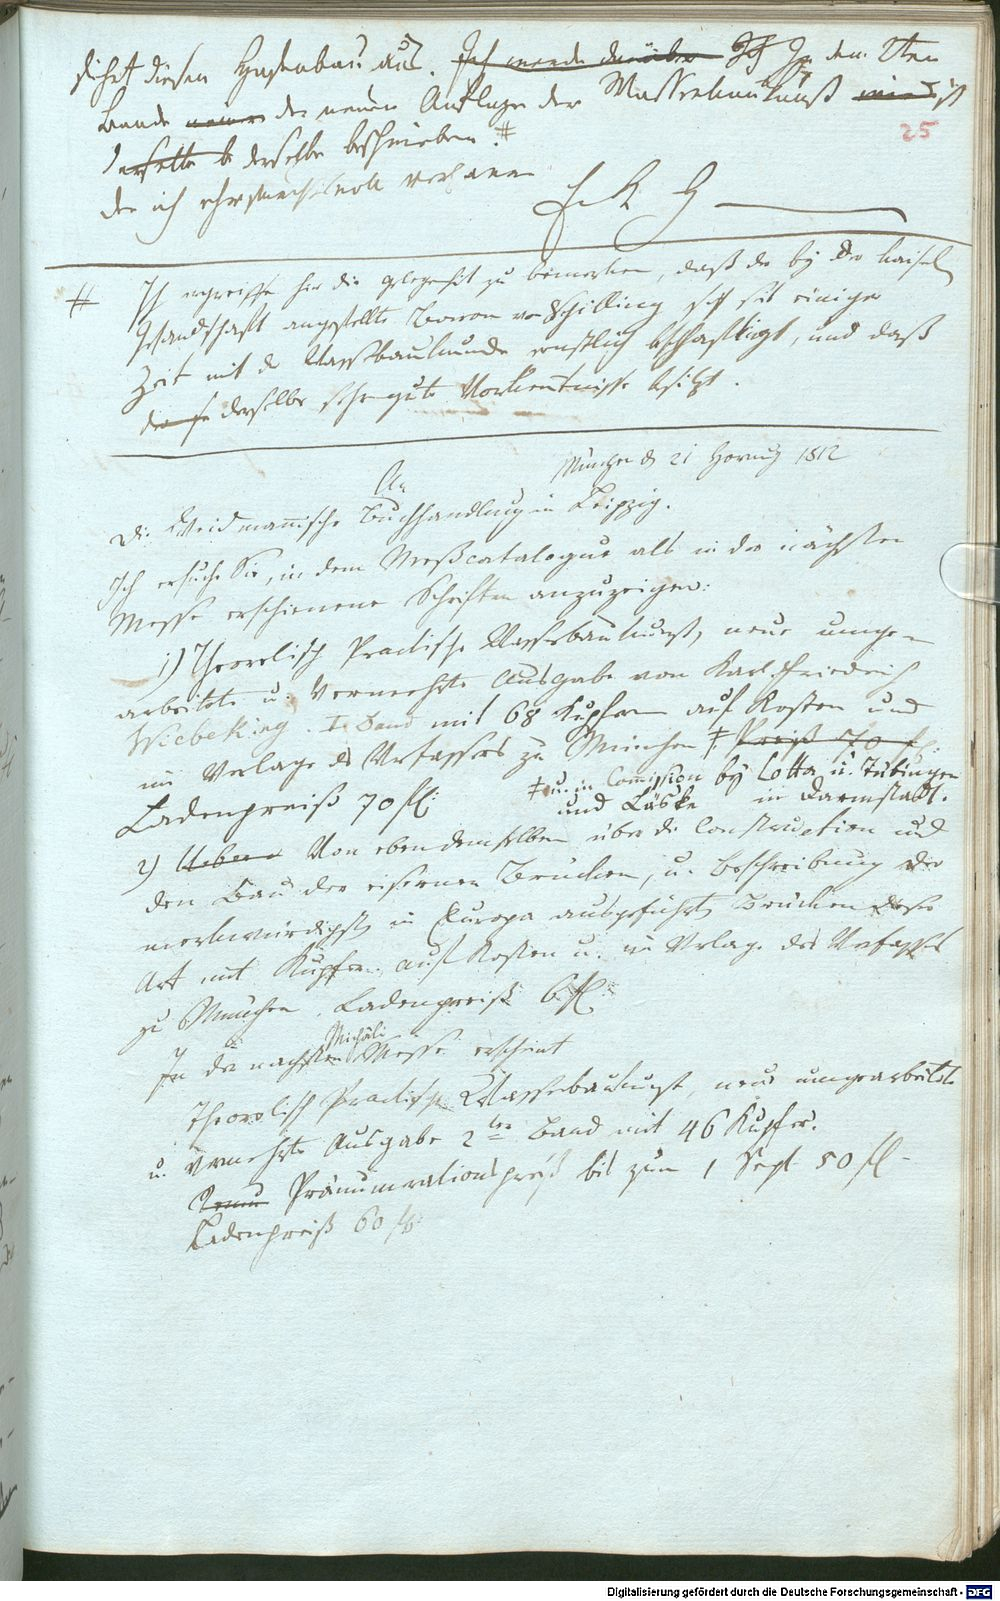 diesen Hafenbau aus. Ich werde darüber In dem 2ten
Bande der neuen Auflage der Wasserbaukunst wird ist
25
derselbe beschrieben. #
der ich ehrfurchtsvoll verharre
# Ich ergreiffe hier die gelegenheit zu bemerken, daß der bey der kaiserl
Gesandschaft angestellte Baron von Schilling sich seit einiger
Zeit mit der Wasserbaukunde ernstlich beschäftigt, und daß
derselbe sehr gute Vorkentnisse besitzt.
München d 21 Hornug 1812
An
die Weidmannische Buchhandlung in Leipzig.
Ich ersuche Sie, in dem Meßcatalogue als in der nächsten
Messe erschienene Schriften anzuzeigen:
1) Theoretisch Practische Wasserbaukunst, neue umge-
arbeitete u: vermehrte Ausgabe von Karl Friedrich
Wiebeking. I Band mit 68 Kupfern auf Kosten und
im Verlage des Verfassers zu München ‡. Preiß 70 fl:
‡ u. in Comission by Cotta u. Tübingen
Ladenpreiß 70 fl:
und Läske in Darmstadt.
2) Ueber Von ebendemselben über die Construction und
den Bau der eisernen Brücken, u. Beschreibung der
merkwürdigsten in Europa ausgeführten Brücken dieser
Art mit Kupfern auf Kosten u. im Verlage des Verfassers
zu München. Ladenpreiß 6 fl:
Michäli
In der nächsten Messe erscheint
Theoretisch Practische Wasserbaukunst, neue umgearbeitete
u. vermehrte Ausgabe 2ter Band mit 46 Kupfer.
Pränumerationspreiß bis zum 1 Sept 50 fl-
Ladenpreiß 60 fl:
Digitalisierung gefördert durch die Deutsche Forschungsgemeinschaft - DFG